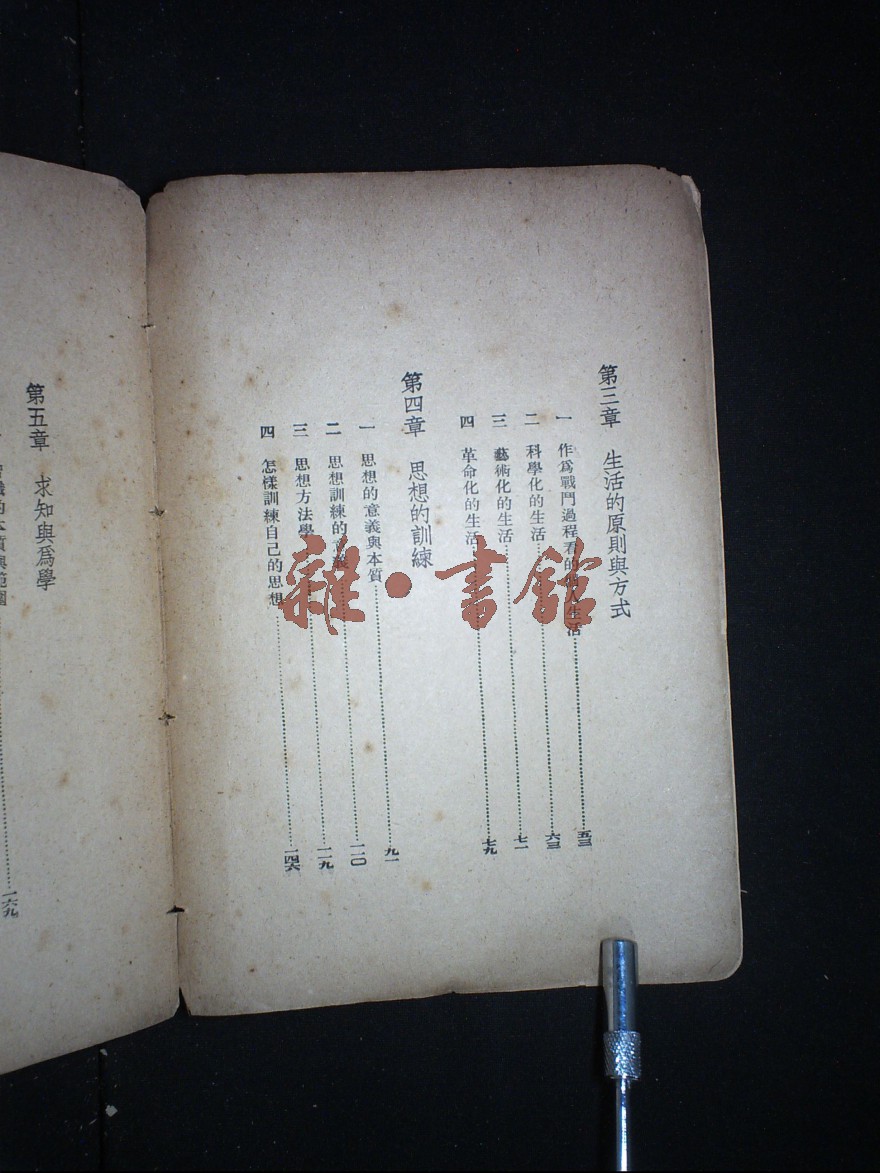 第三章　生活的原則與方式
一　作爲戰鬥過程看的個人生活………五三
二　科學化的生活………六三
三　藝術化的生活………七一
四　革命化的生活………七九
第四章　思想的訓練
一　思想的意義與本質………九一
二　思想訓練的………一一〇
三　思想方法學………一一九
四　怎樣訓練自己的思想………一四六
第五章　求知與爲學
的本質與範圍………一六九
雜·書館